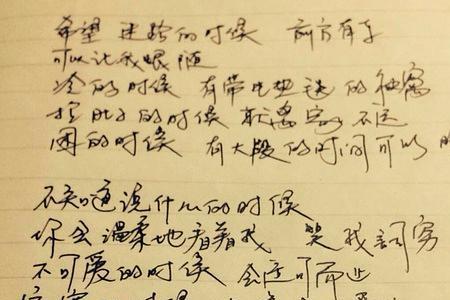 希望 迷路的时候 前方有车
可以让我跟随
冷的时候 有带电热毯的被窝
拉肚子的时候 就离家不远
困的时候 有大段的时间可以
不知道说什么的时候
你会温柔地看着我 笑我词穷
不可爱的时候 会适可而止